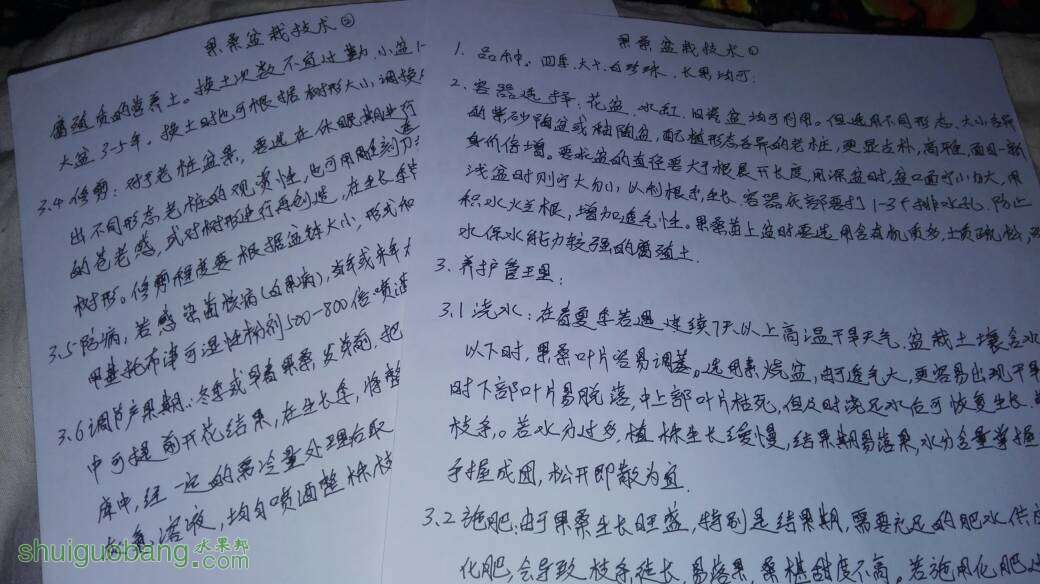 果桑盆栽技术②
腐殖质的营养土。换土次数不宜过勤,小盆1-
大盆3-5年。换土时也可根据树形大小,调换
3.4修剪:对于老桩盆景,要选在休眠期进行
出不同形态老桩的观赏性,也可用雕刻刀
的苍老感,或对树形进行再创造,在生长季节
树形。修剪程度要根据盆钵大小,形式和
3.5防病,若感染菌核病(白果病),当年或来年
用甲基托布津可湿性粉剂500-800倍喷洒
3.6调节产果期:冬季或早春果桑,发芽前,把
中可提前开花结果,在生长季,将整
库中,经一定的需冷量处理后取
溶液,均匀喷洒整株枝
果桑盆栽技术①
1. 品种。四季、大十、白珍珠、长果均可.
2. 容器选择:花盆、水缸、旧瓷盆均可利用。但选用不同形态、大小各异
的紫砂陶盆或釉陶盆,配植形态各异的老桩,更显古朴,高雅,面目一新
身价倍增。要求盆的直径要大于根展开长度,用深盆时,盆口面可小勿大,用
浅盆时则可大勿小,以利根系生长.容器底部要打1-3个排水孔.防止
积水烂根,增加透气性。果桑苗上盆时要选用含有机质多,土质疏松,
水保水能力较强的腐殖土.
3. 养护管理:
3.1浇水:在春夏季若遇连续7天以上高温干旱天气.盆栽土壤含水
以下时,果桑叶片容易凋萎。选用素烧盆,由于透气大,更容易出现干旱
时下部叶片易脱落,中上部叶片枯死,但及时浇足水后可恢复生长.
枝条。若水分过多,植株生长缓慢,结果期易落果,水分含量掌握
手握成团,松开即散为宜.
3.2施肥:由于果桑生长旺盛,特别是结果期,需要充足的肥水供应
化肥,会导致枝条徒长,易落果,桑椹甜度不高.若施用化肥
shuiguobang.com
水果邦